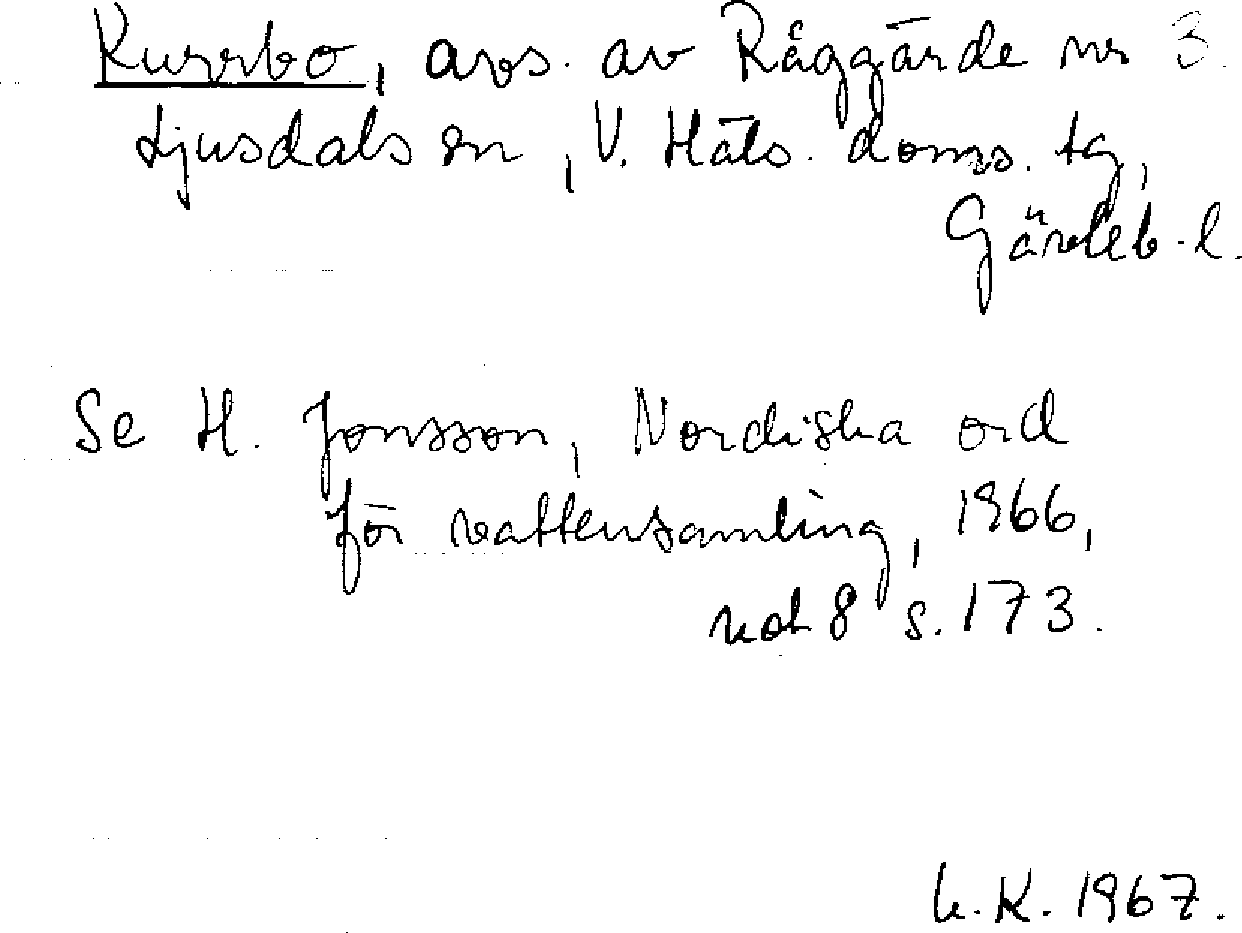 avs. av Råggärde nr 3.
Ljusdals sn, V. Häls. doms. tg,
Gävleb. l.
Se H. Jonsson, Nordiska ord
för vattensamling, 1966,
not 8 s. 173.
K. 1967.